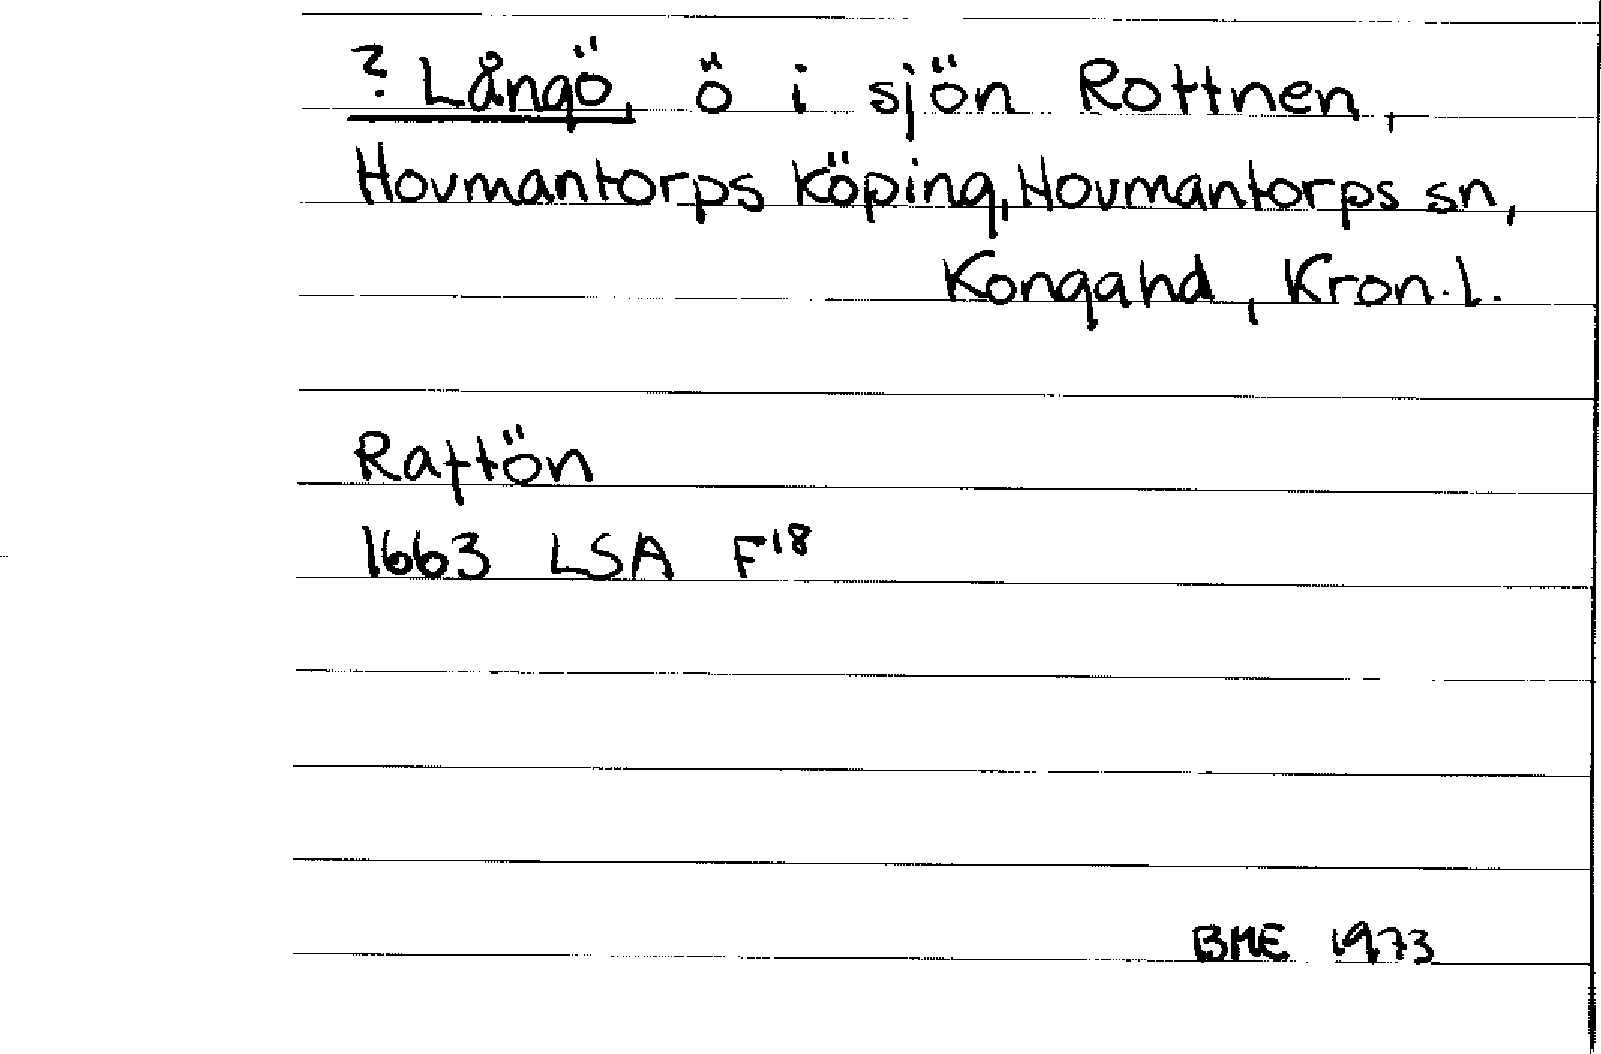 ? Långö, ö i sjön Rottnen,
Hovmantorps köping, Hovmantorps sn,
Kongahd, Kron.l.
Raftön
1663 LSA F18
BME 1973